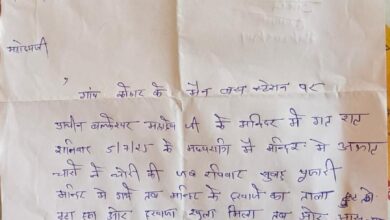 महोदयजी
गांव के मैन बस स्टेशन पर
प्राचीन महादेव जी के मन्दिर में गत रात
शनिवार 5/7/25 के मध्यरात्रि में मन्दिर में अज्ञात
चोरों ने चोरी की जब रविवार सुबह पुजारी
मन्दिर में तब मन्दिर के दरवाजे का ताला
हुआ और दरवाजा खुला मिला तब और